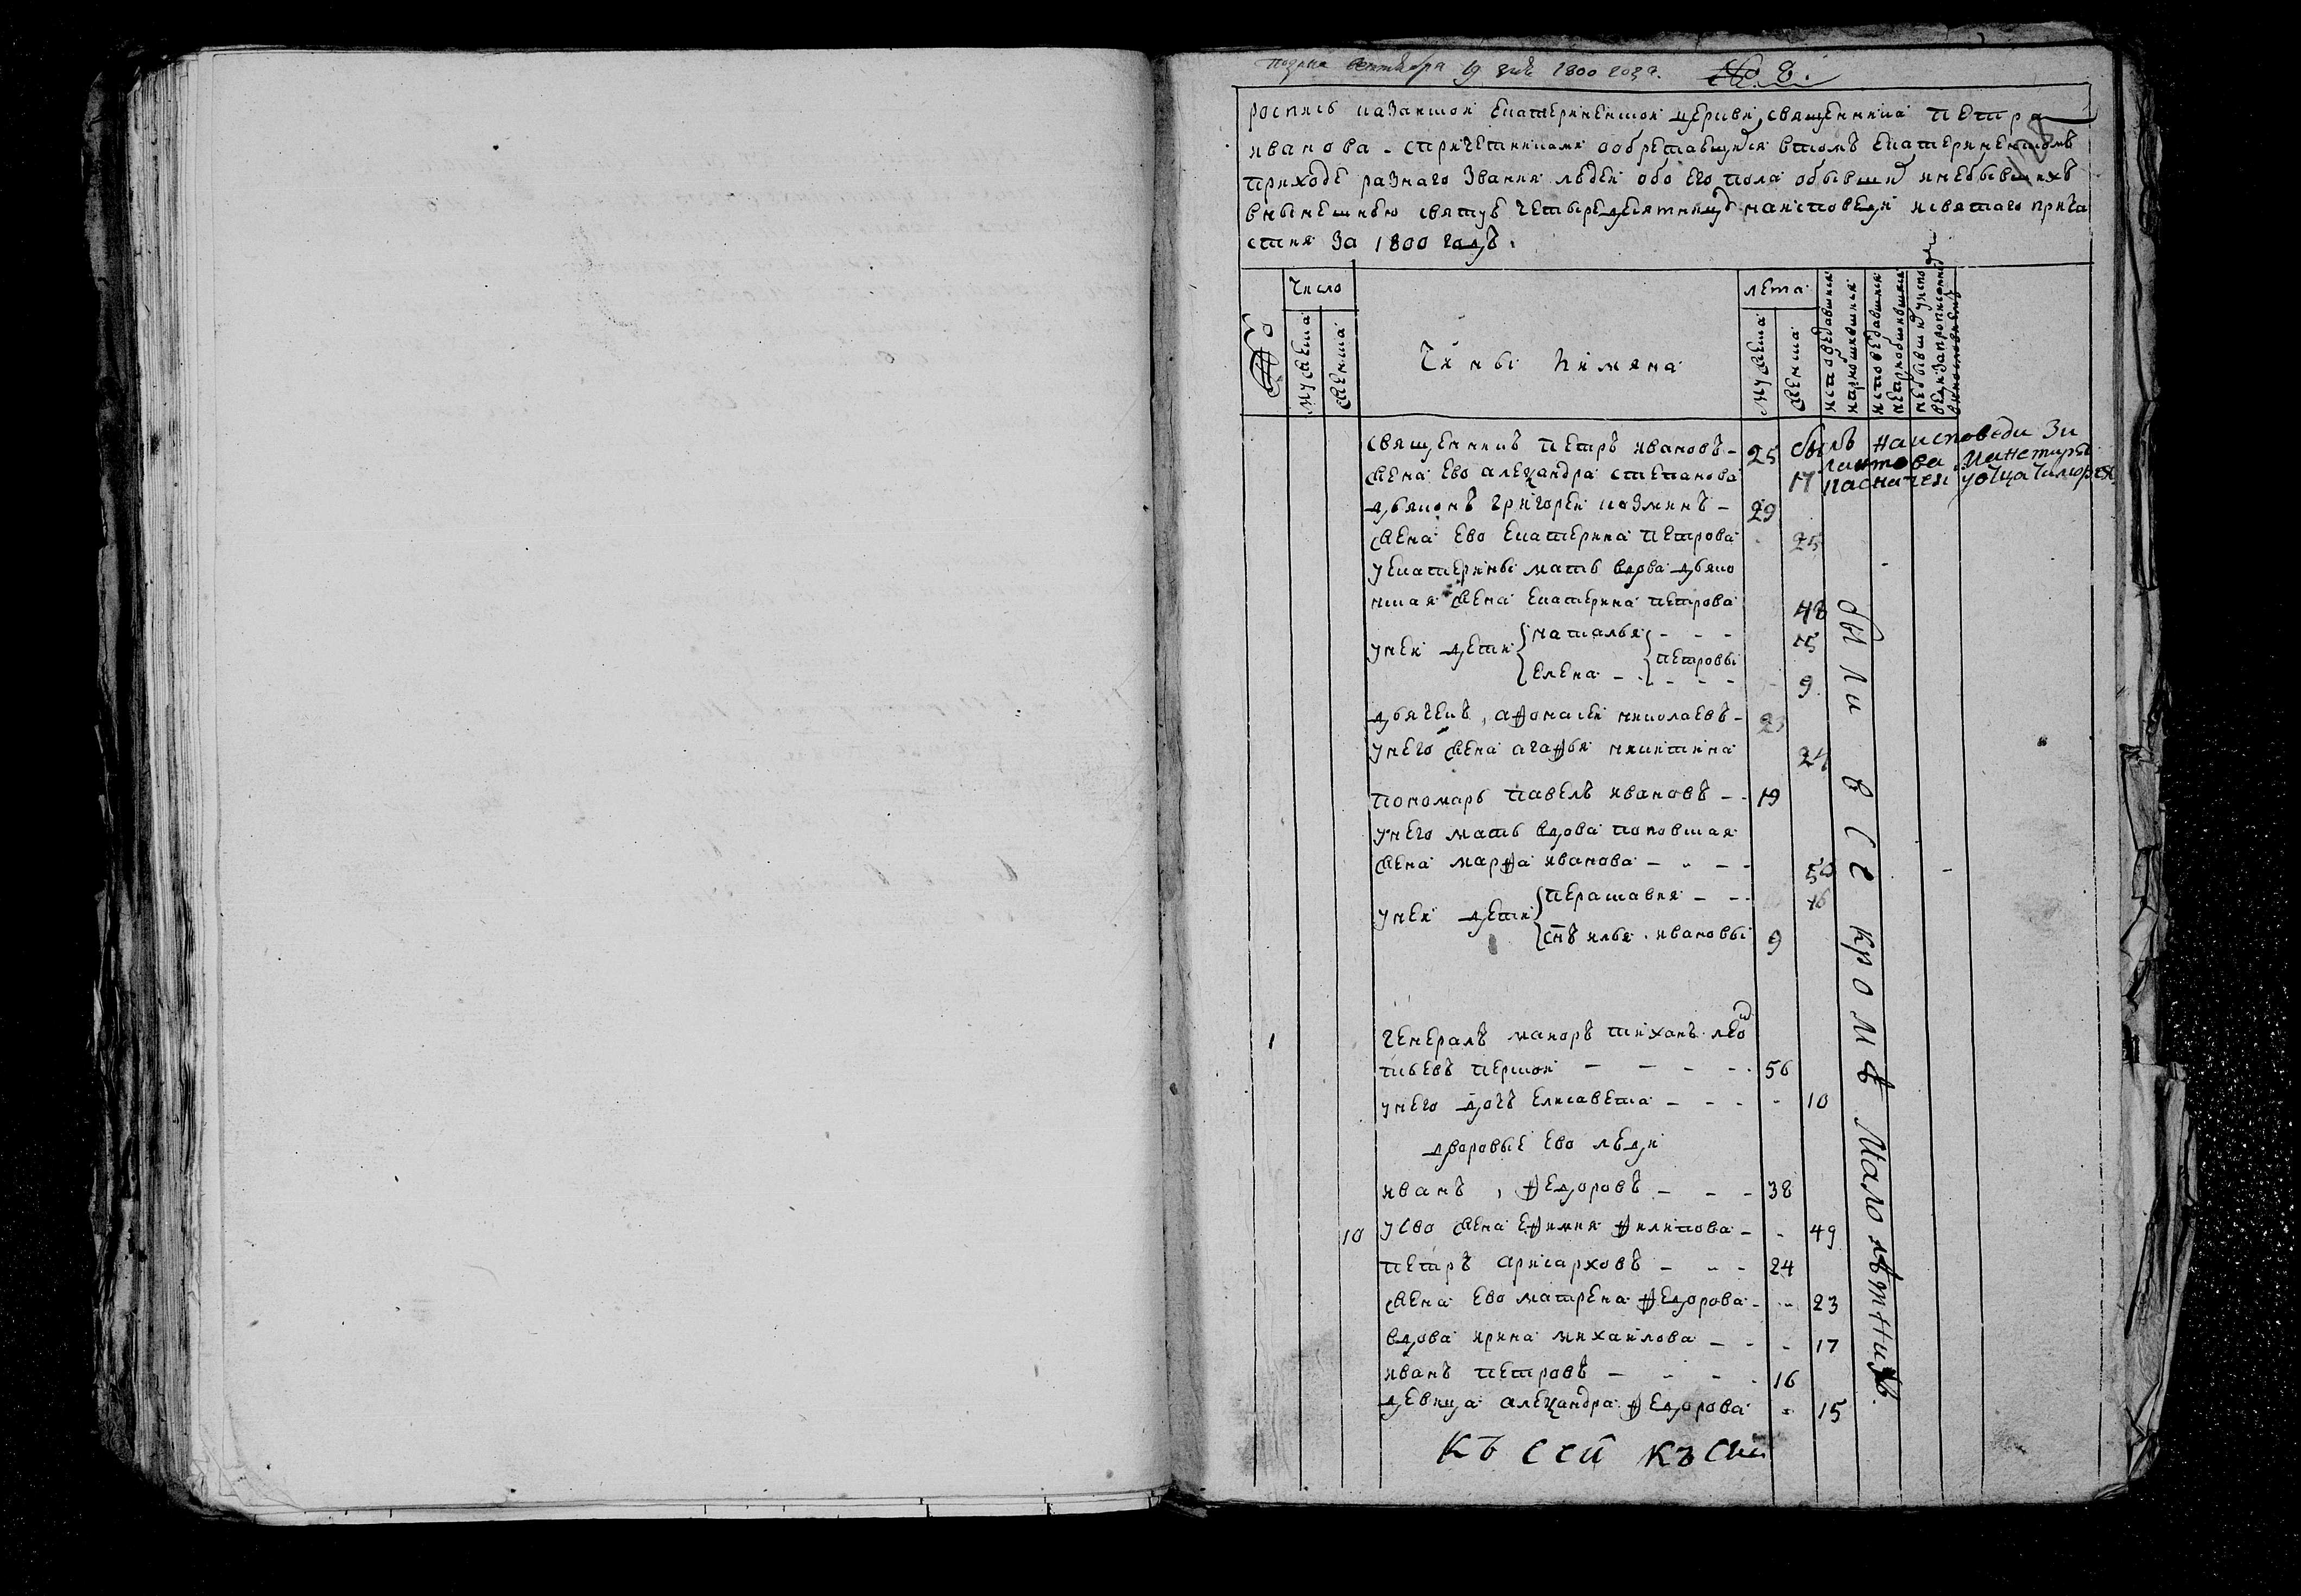 Подана Сентября 19 дня 1800 года. № 8.
роспись казанской Екатерининской церкви священника петра
иванова - спричетниками ообретающихся втомъ Екатерининскомъ
приходе разнаго звания людей обоего пола обывших инебывшихъ
внынешнюю святую четыредесятницу наисповеди исвятаго прича
стия за 1800 годъ.
№
число
мужеска
женска
чины имяна
лета
мужеска
женска
исповедавшияся
приобщившияся
исповедавшияся
неприобщившияся
небывших уиспо
священникъ петръ ивановъ - 25 былъ наисповеди
жена ево александра степанова 17
дьяконъ григорей козминъ - 29
жена ево Екатерина петрова 25
уекатерины мать вдова дьяко
нская жена Екатерина петрова 48
унеи дети наталья - - - 15
елена - - петровы 9
дьячекъ, афонасей николаевъ - 23
унего жена агафья никитина 24
пономарь павелъ ивановъ - - 19
унего мать вдова поповская
жена марфа иванова - - - 50
унеи дети перасковия - - 16
снъ илья ивановы 9
1 генералъ маиоръ тихонъ лео
тьевъ перской - - - - 56
унего дочь елисавета - - - - 10
дворовые ево люди
иванъ, федоровъ - - - 38
10 уево жена ефимия филипова - - 49
петръ арисарховъ - - - 24
жена ево матрена федорова - - 23
вдова ирина михаилова - - - 17
иванъ петровъ - - - - 16
девица александра федорова - 15
были в се кромѣ Малолѣтнихъ.
къ сей къ сии